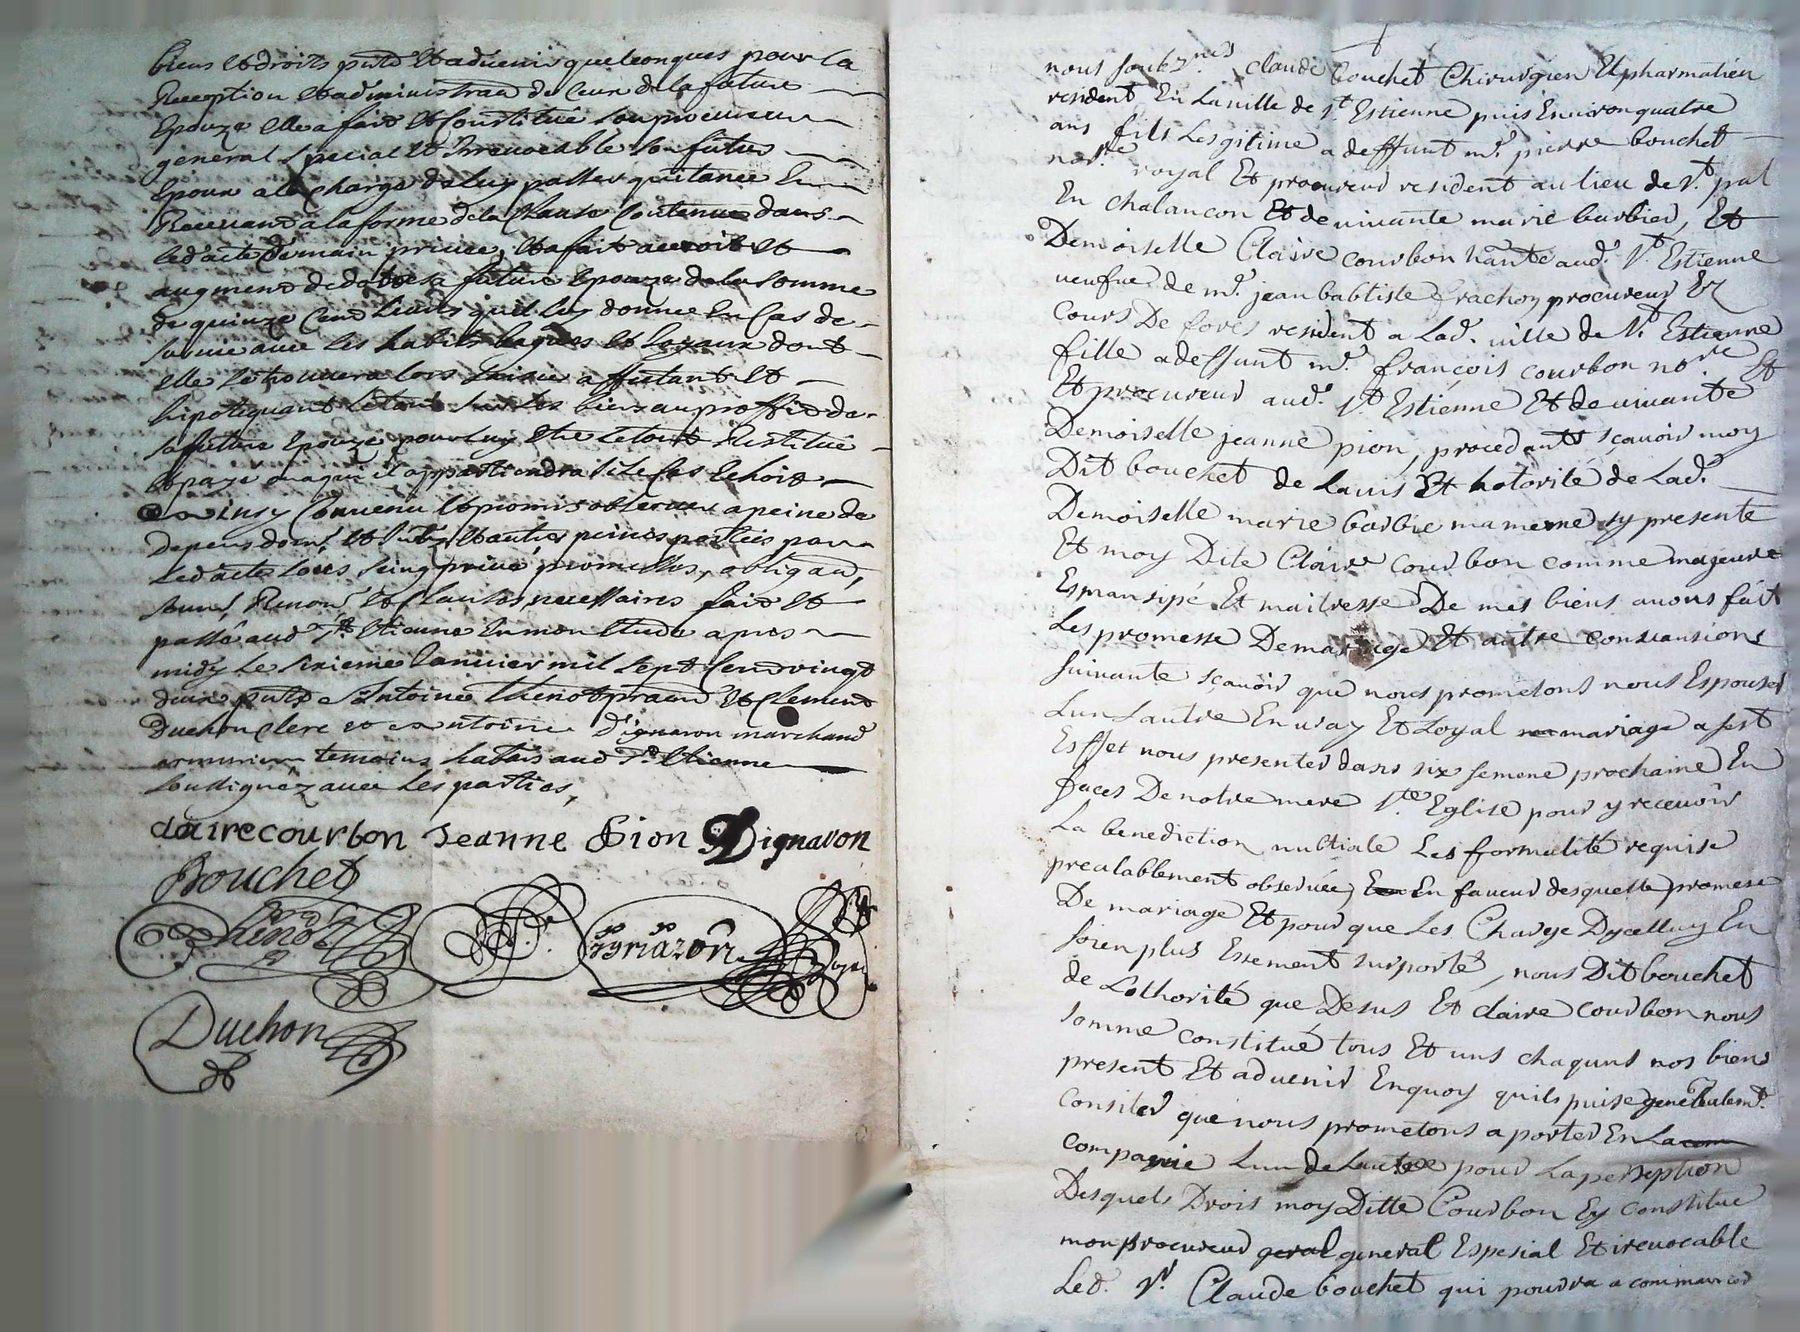 biens et droits pnts et aduenir quelconques pour la
Reception et administraon de ceux de la future
Epouze elle a fait et Constitué son procureur
general special et Irreuocable son futur
Epoux a la charge de luy passer quitance En
Receuant a la forme de la Clause Contenue dans
led acte demain priuée, et a fait accroit et
augment de dot a sa future Epouze de la somme
de quinze Cend liures qu'il luy donne En Cas de
suruie auec les habits bagues et Joyaux dont
elle se trouuera lors saisie affectant et
hipotequant le tout sur ses biens au proffit de
sa future Epouze pour luy etre le tout Restitué
et payé a qui il appartiendra si le Cas Echoit
ainsy Conuenu et promis obseruer a peine de
depens dom. et autres peines portées par
led acte sous seing priué, promesses, obligaon,
soum, Renon, et Clauses necessaires fait et
passé aud St Etienne En mon Etude apres
midy le sixieme Januier mil sept Cend vingt
deux pnts Antoine Thenot praen et Clement
Duchon clerc et antoine Dignaron marchand
armurier temoins habitans aud St Etienne
soussignéz auec les parties,
claire courbon Jeanne Pion Dignaron
Bouchet
Thenot
Duchon
nous soubznés Claude bouchet Chirurgien Et pharmatien
resident En La uille de St Estienne puis Enuiron quatre
ans fils Lesgitime a deffunt mr. pierre bouchet
nore royal Et procureur resident au lieu de St pal
En chalancon Et de uiuante marie barbier, Et
Demoiselle Claire courbon hante aud. St Estienne
ueufue de mr. jean babtiste frachon procureur Ez
cours De forés resident a Lad. uille de St Estienne
fille a deffunt mr. françois courbon nore Et
Et procureur aud. St Estienne Et de uiuante
Demoiselle jeanne pion, procedants sçauoir moy
Dit bouchet de Lauis Et hotorité de Lad.
Demoiselle marie barbie ma mere sy presente
Et moy Dite Claire courbon comme majeure
Esmansipé Et maitresse De mes biens auons fait
Les promesse De mariage Et autre conuansions
suiuante sçauoir que nous prometons nous Espouser
Lun Lautre En uray Et Loyal mariage a sest
Esffet nous presenter dans six semene prochaine En
faces De notre mere Ste Eglise pour y receuoir
La benediction nubtiale Les formalité requise
prealablement obseruée, En faueur desquelle promese
De mariage Et pour que Les Charge Dycelluy En
soien plus Esement surporté, nous Dit bouchet
de Lothorité que Desus Et claire courbon nous
somme constitué tous Et uns chaquns nos biens
present Et aduenir En quoy quils puise generalemt.
consiter que nous prometons a porter En La
compagnie Lun de Lautre pour La perseption
Desquels Drois moy Ditte Courbon Ey constitue
mon procureur general Espesial Et ireuocable
Led. Sr. Claude bouchet qui pourra